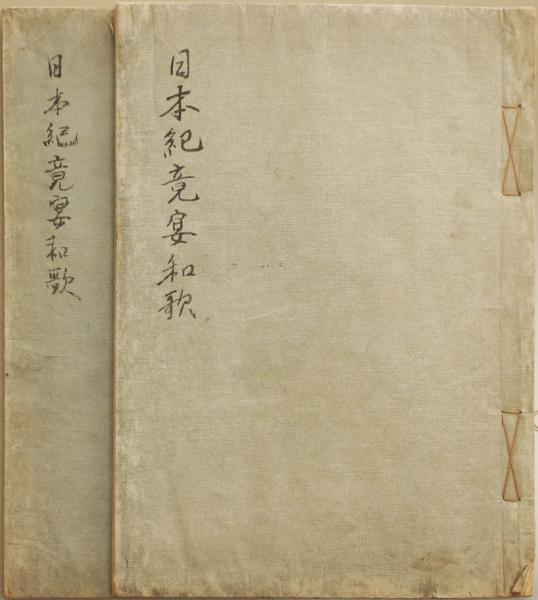 日本紀竟宴和歌
日本紀竟宴和歌